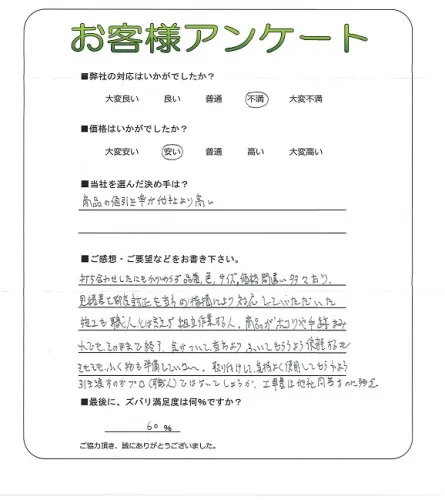 お客様アンケート
■弊社の対応はいかがでしたか?
大変良い 良い 普通 不満 大変不満
■価格はいかがでしたか?
大変安い 安い 普通 高い 大変高い
■当社を選んだ決め手は?
商品の値引き率が他社より高い
■ご感想・ご要望などをお書き下さい。
打ち合わせしたにもかかわらず品番、色、サイズ、価格間違い多々あり、
見積書を都度訂正を当方の指摘により対応していただいた
施工も職人とは言えず組立作業する人、商品がホコリや手あかまみ
れでもそのままで終了、気がついて当方より、ふいてもらうよう依頼
ふく物も準備していない、取り付けして気持よく使用してもらうよう
引き渡すのがプロ(職人)ではないでしょうか、工事費は他社同等
■最後に、ズバリ満足度は何%ですか?
60 %
ご協力頂き、誠にありがとうございました。